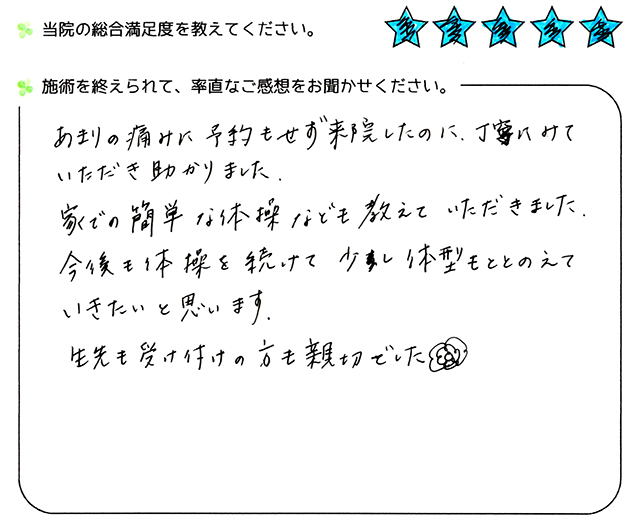 当院の総合満足度を教えてください。
施術を終えられて、率直なご感想をお聞かせください。
あまりの痛みに予約もせず来院したのに、丁寧にみて
いただき助かりました。
家での簡単な体操なども教えていただきました。
今後も体操を続けて少し体型もととのえて
いきたいと思います。
生先も受け付けの方も親切でした